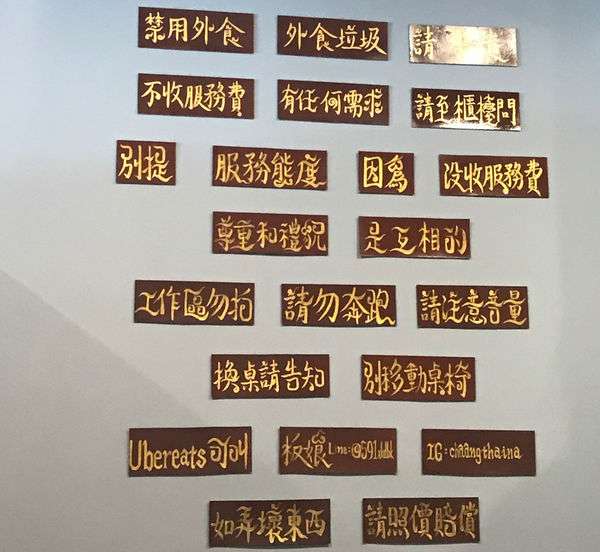 禁用外食 外食垃圾 請
不收服務費 有任何需求 請至櫃檯問
別提 服務態度 因為 沒收服務費
尊重和禮貌 是互相的
工作區勿拍 請勿奔跑 請注意音量
換桌請告知 別移動桌椅
Ubereats可叫 板孃 Line:@591 IG:chaangthaina
如弄壞東西 請照價賠償